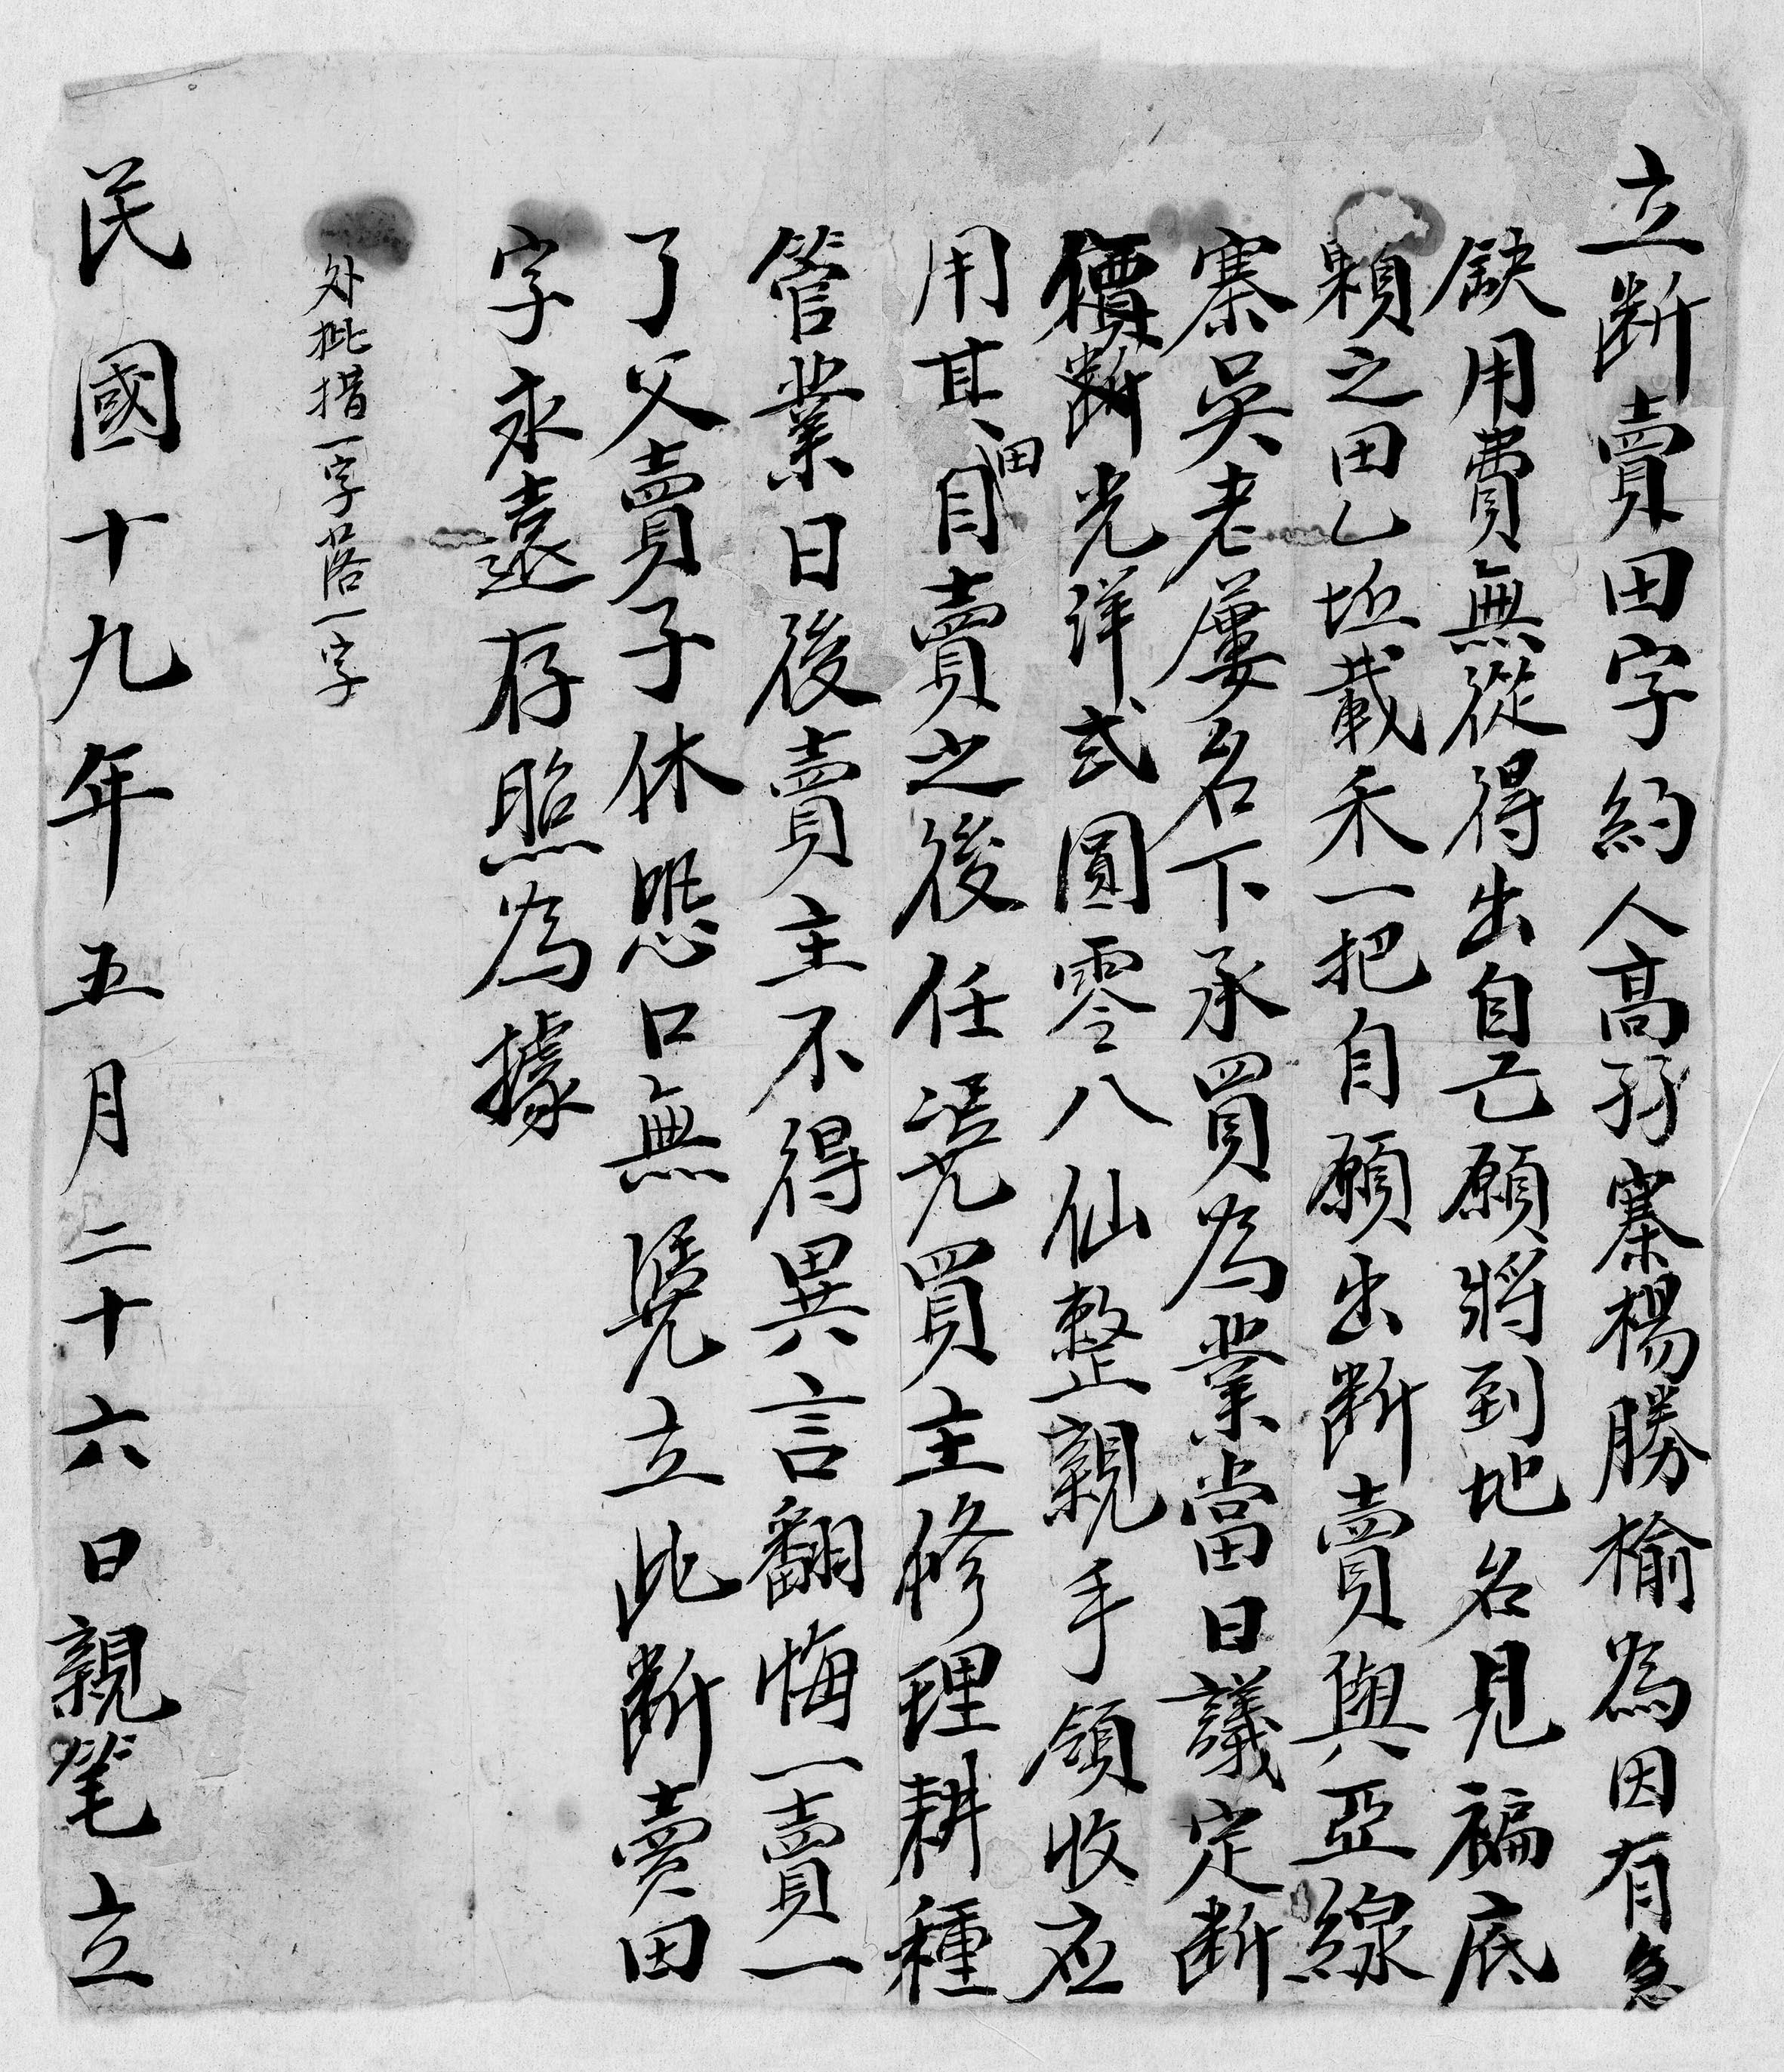 立断賣田字約人高孖寨楊勝榆為因有急
缺用費無從得出自己願將到地名見褊底
顆之田乙坵載禾一把自願出断賣與亞線
寨吳老屢名下承買為業當日議定断
價断光洋式圓零八仙整親手領收应
用其田自賣之後任凴買主修理耕種
管業日後賣主不得異言翻悔一賣一
了父賣子休恐口無凴立此断賣田
字永遠存照為據
外批措一字落一字
民國十九年五月二十六日親笔立